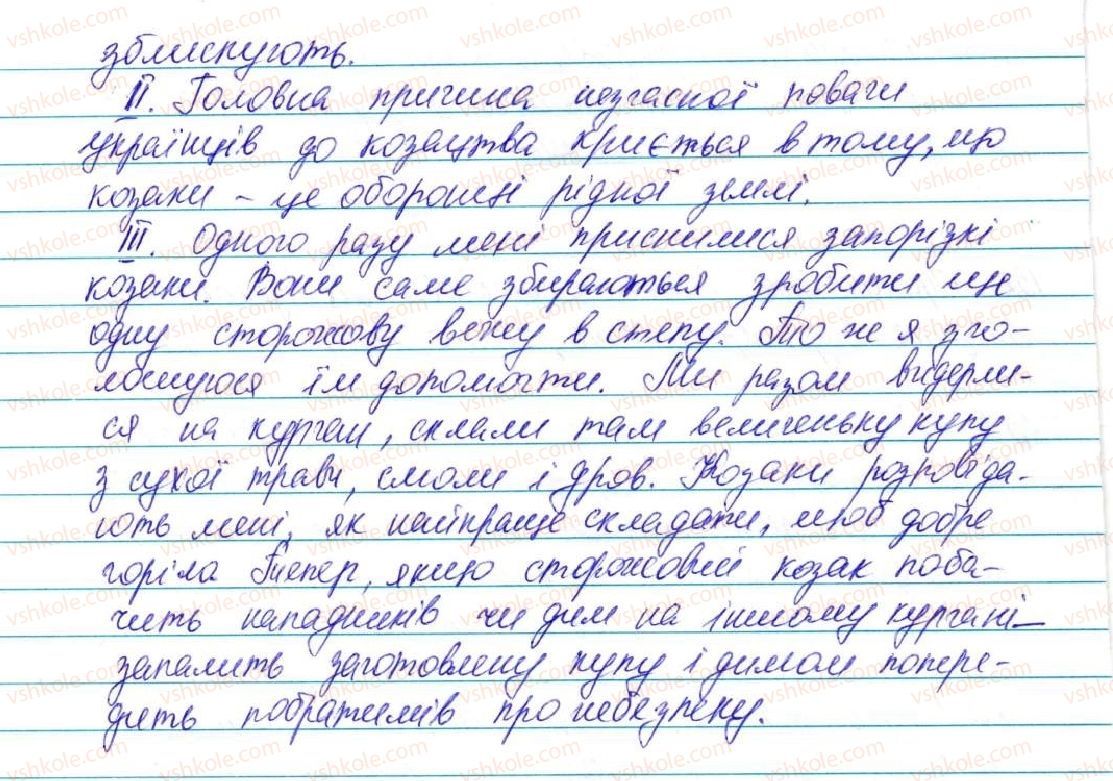 зблискують.
II. Головна причина незгасної поваги
українців до козацтва криється в тому, що
козаки – це оборонці рідної землі.
III. Одного разу мені приснилися запорізкі
козаки. Вони саме збираються зробити ще
одну сторожову вежу в степу. Тож я зго-
лошуюся їм допомогти. Ми разом видерли-
ся на курган, склали там величеньку купу
з сухої трави, смоли і дров. Козаки розповіда-
ють мені, як найкраще складати, щоб добре
горіла Тепер, якщо сторожовий козак поба-
чить нападників чи дим на іншому кургані –
запалить заготовлену купу і димом попере-
дить побратимів про небезпеку.